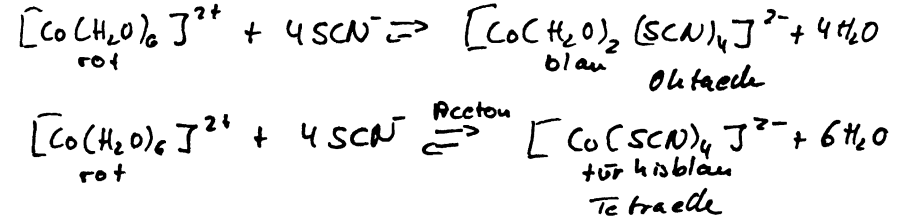 [Co(H₂O)₆]²⁺ + 4SCN⁻ ⇌ [Co(H₂O)₂(SCN)₄]²⁻ + 4H₂O
rot blau
Oktaeder
Aceton
[Co(H₂O)₆]²⁺ + 4SCN⁻ ⇌ [Co(SCN)₄]²⁻ + 6H₂O
rot türkisblau
Tetraeder